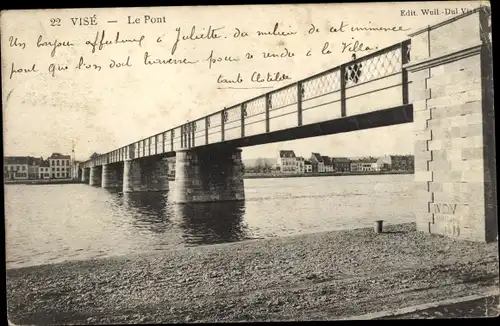 22 VISÉ. — Le Pont
Edit. Wuil-Dul Visé
Un bonjour affectueux à Juliette, du milieu de cet immense
pont que l'on doit traverser pour se rendre à la villa
tante Clotilde